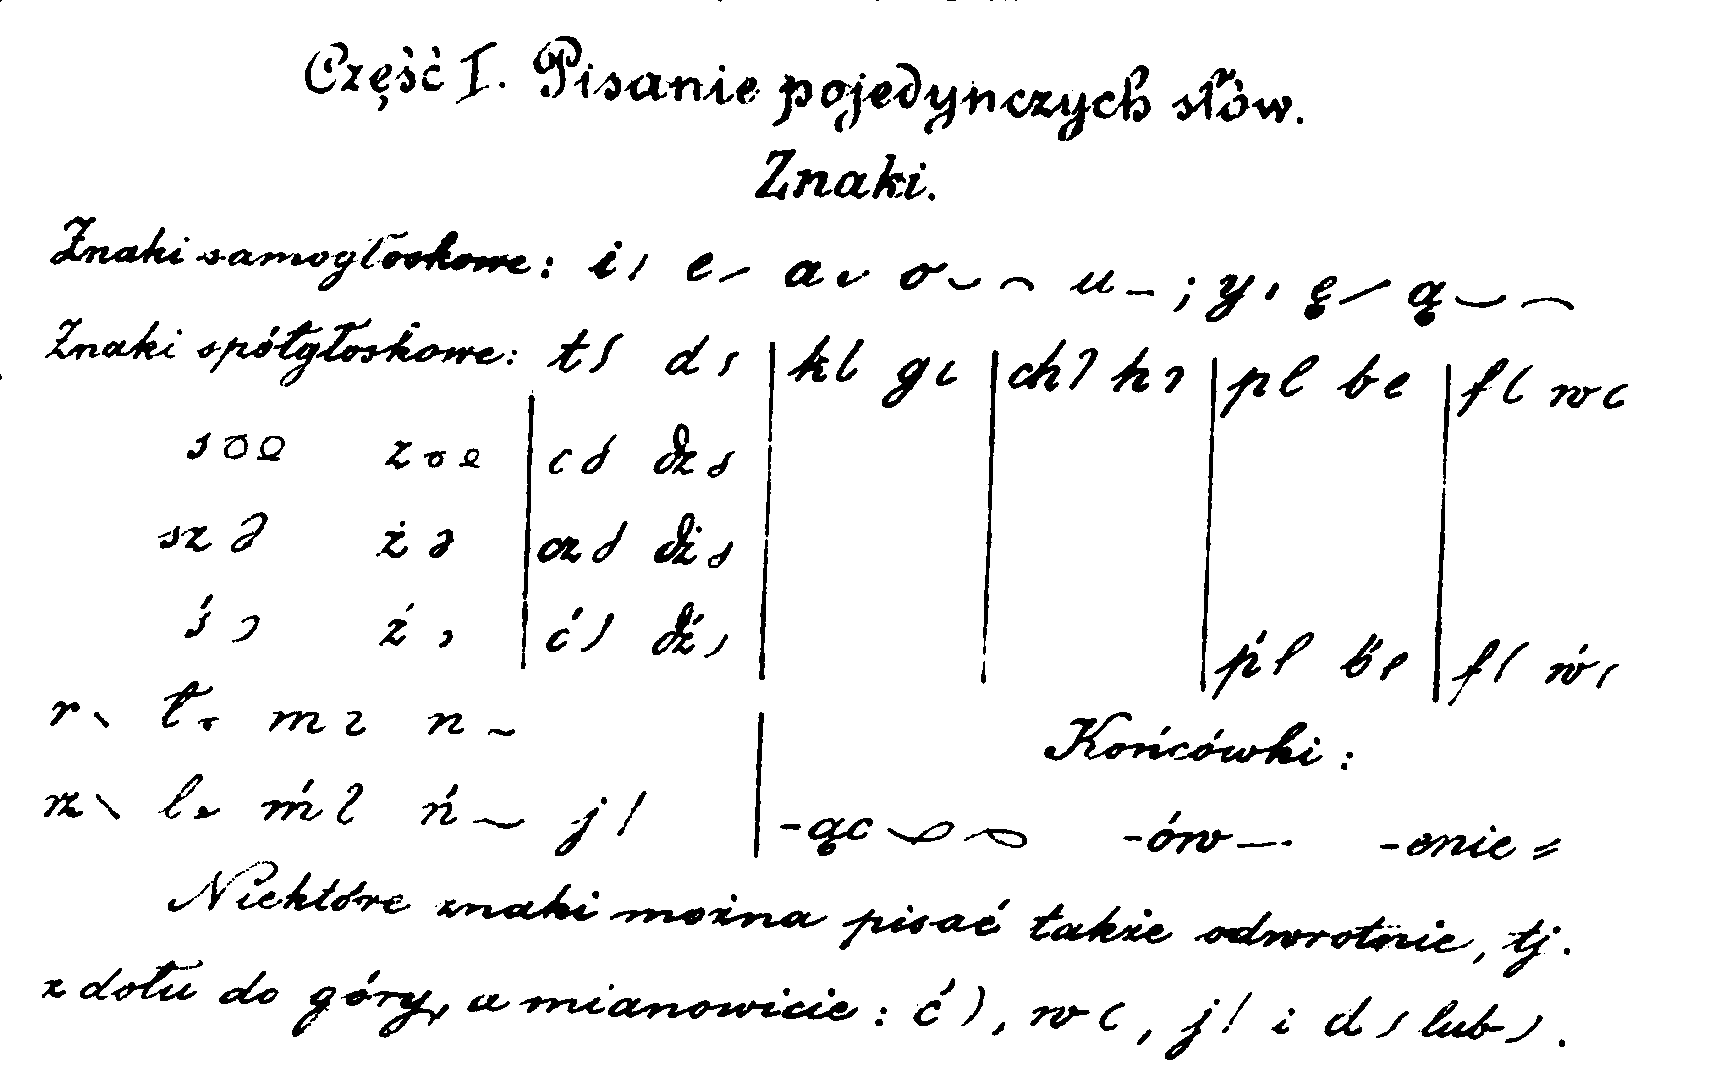 Część I. Pisanie pojedynczych słów.
Znaki.
Znaki samogłoskowe: i e a o u ; y ę ą
Znaki spółgłoskowe: t d k g ch h p b f w
s z c dz
sz ż cz dż
ś ź ć dź ṕ b́ f́ ẃ
r ł m n
Końcówki:
rz l ḿ ń j -ąc -ów -enie
Niektóre znaki można pisać także odwrotnie, tj.
z dołu do góry, a mianowicie: ć, w, j i d lub.